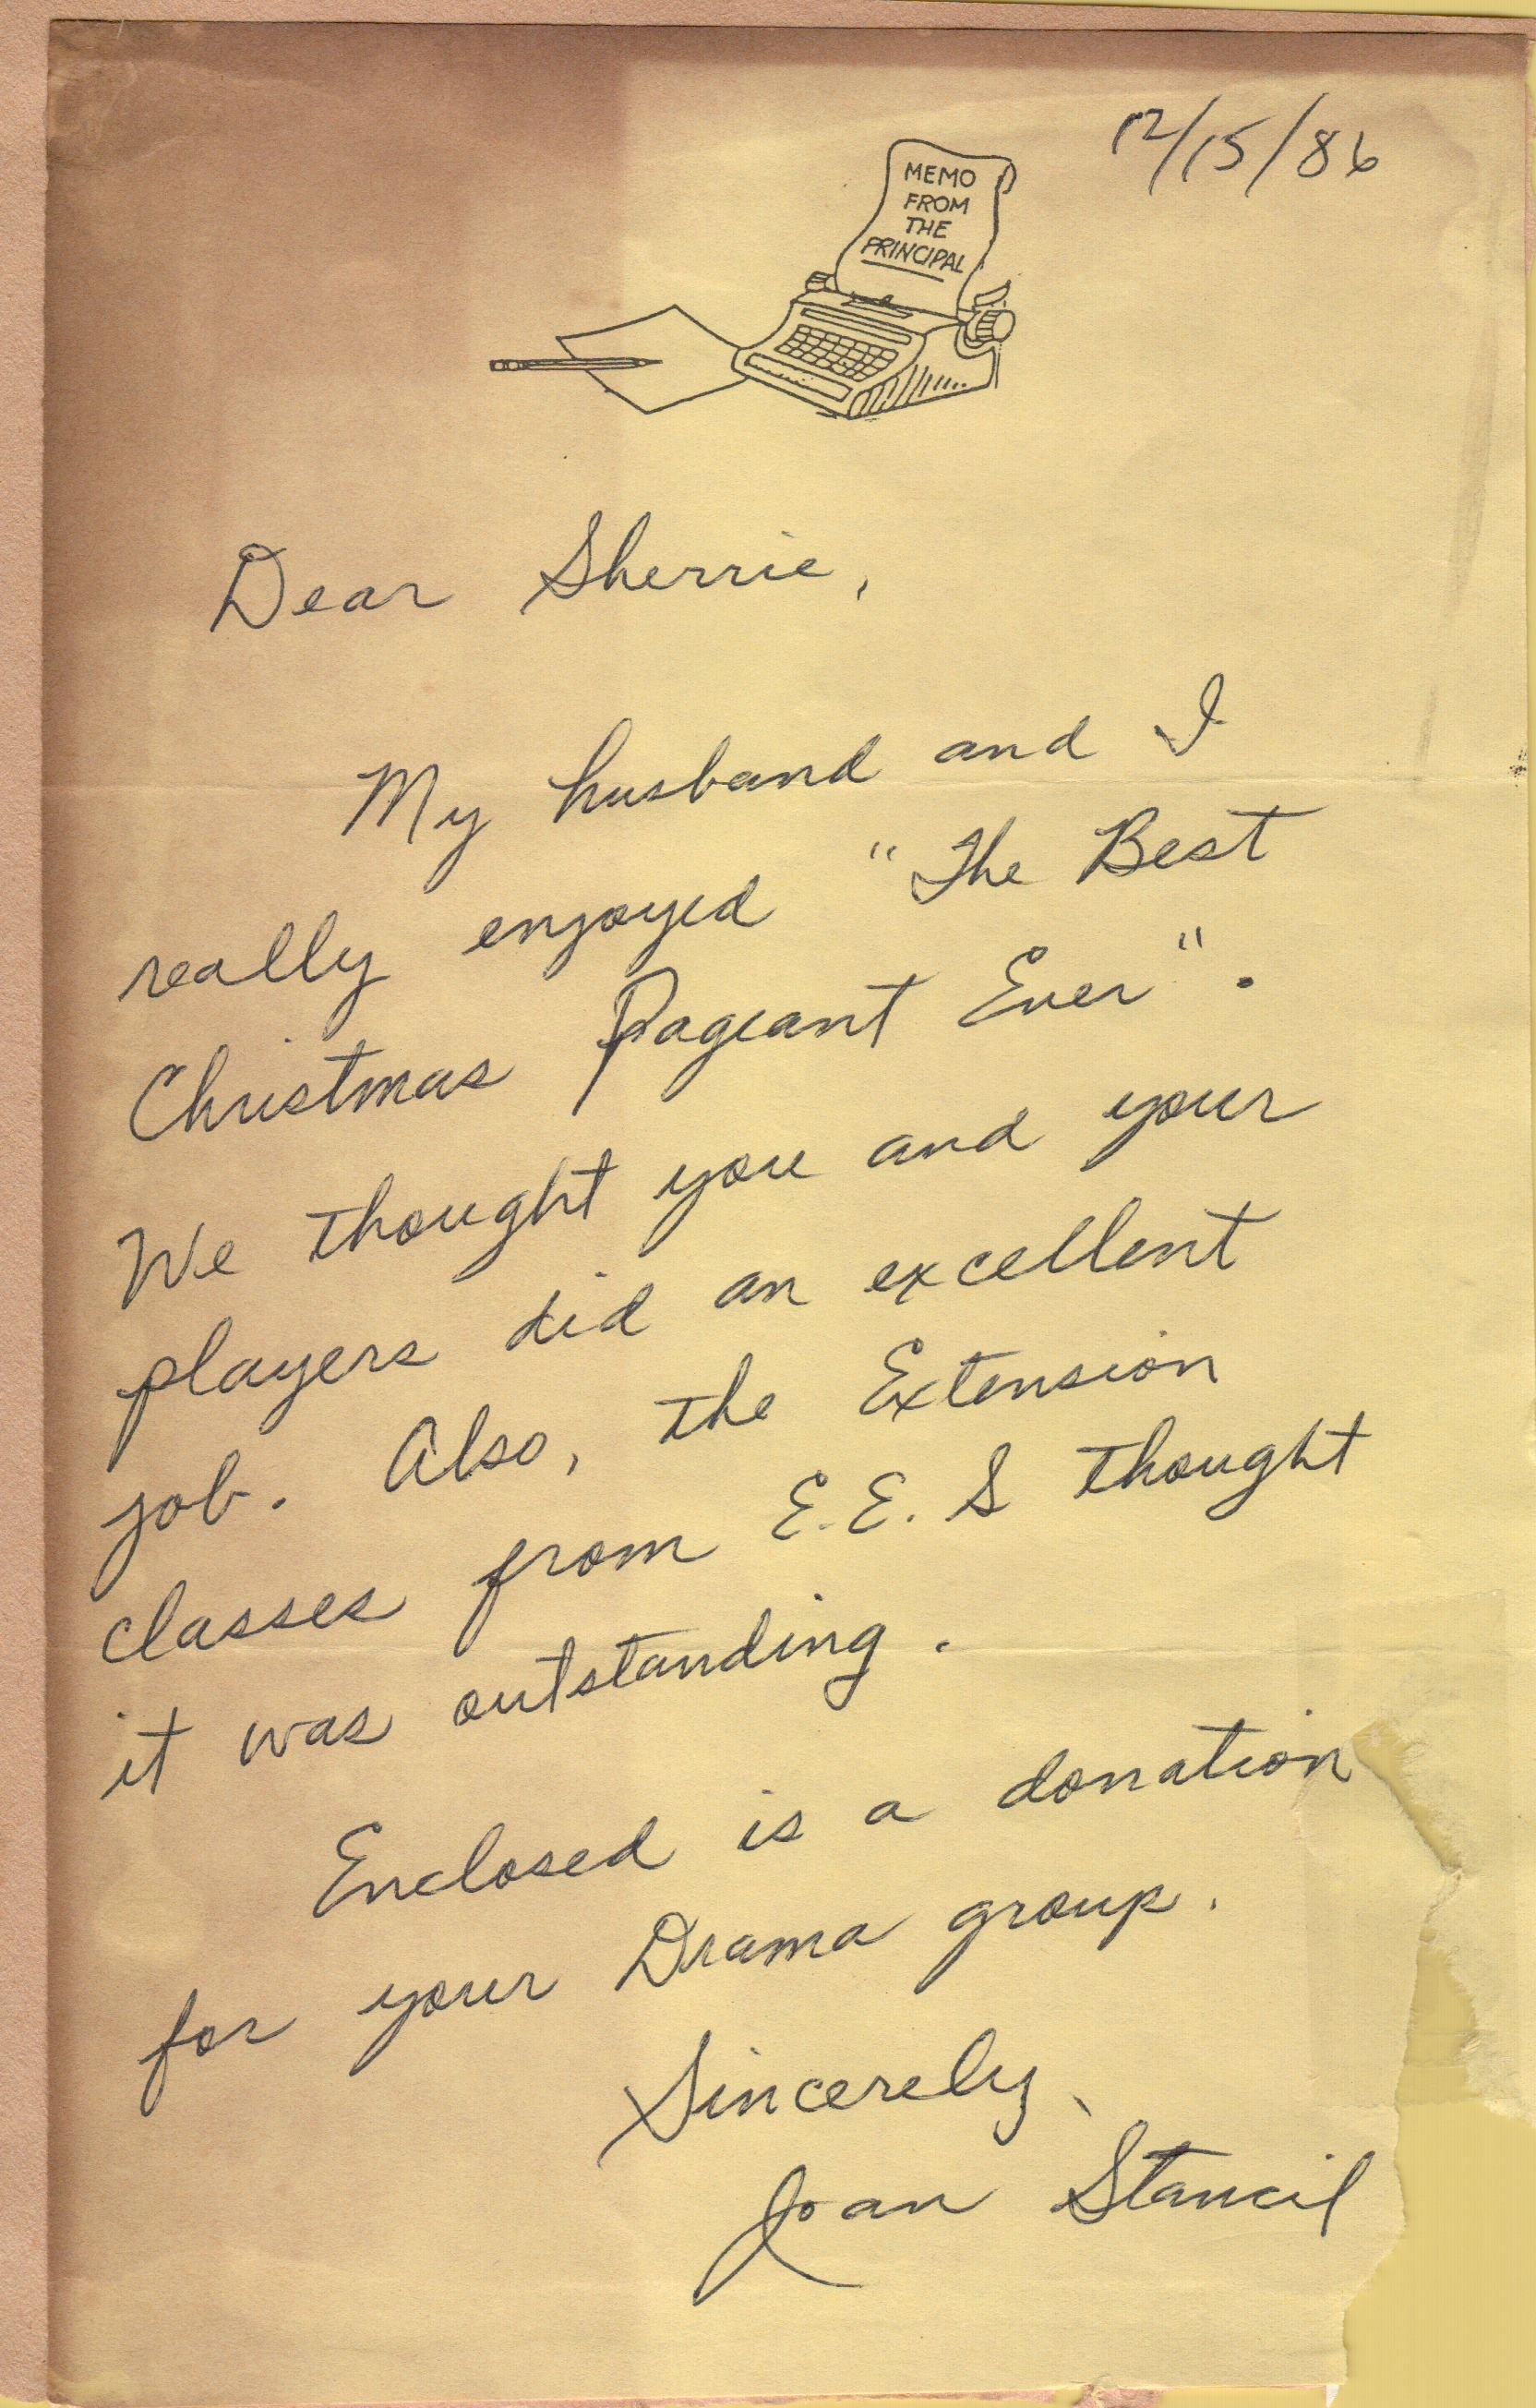 12/15/86
MEMO
FROM
THE
PRINCIPAL
Dear Sherrie,
My husband and I
really enjoyed "The Best
Christmas Pageant Ever".
We thought you and your
players did an excellent
job. Also, the Extension
classes from E.E. S thought
it was outstanding.
Enclosed is a donation
for your Drama group.
Sincerely,
Joan Stancil